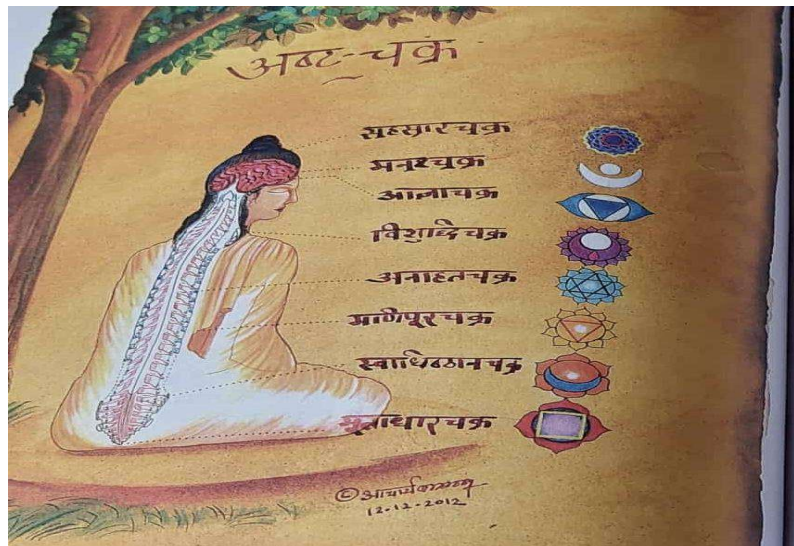 अष्ट-चक्र
सहस्रारचक्र
मनश्चक्र
आज्ञाचक्र
विशुद्धिचक्र
अनाहतचक्र
मणिपूरचक्र
स्वाधिष्ठानचक्र
मूलाधारचक्र
© आचार्य बालकृष्ण
12-12-2012